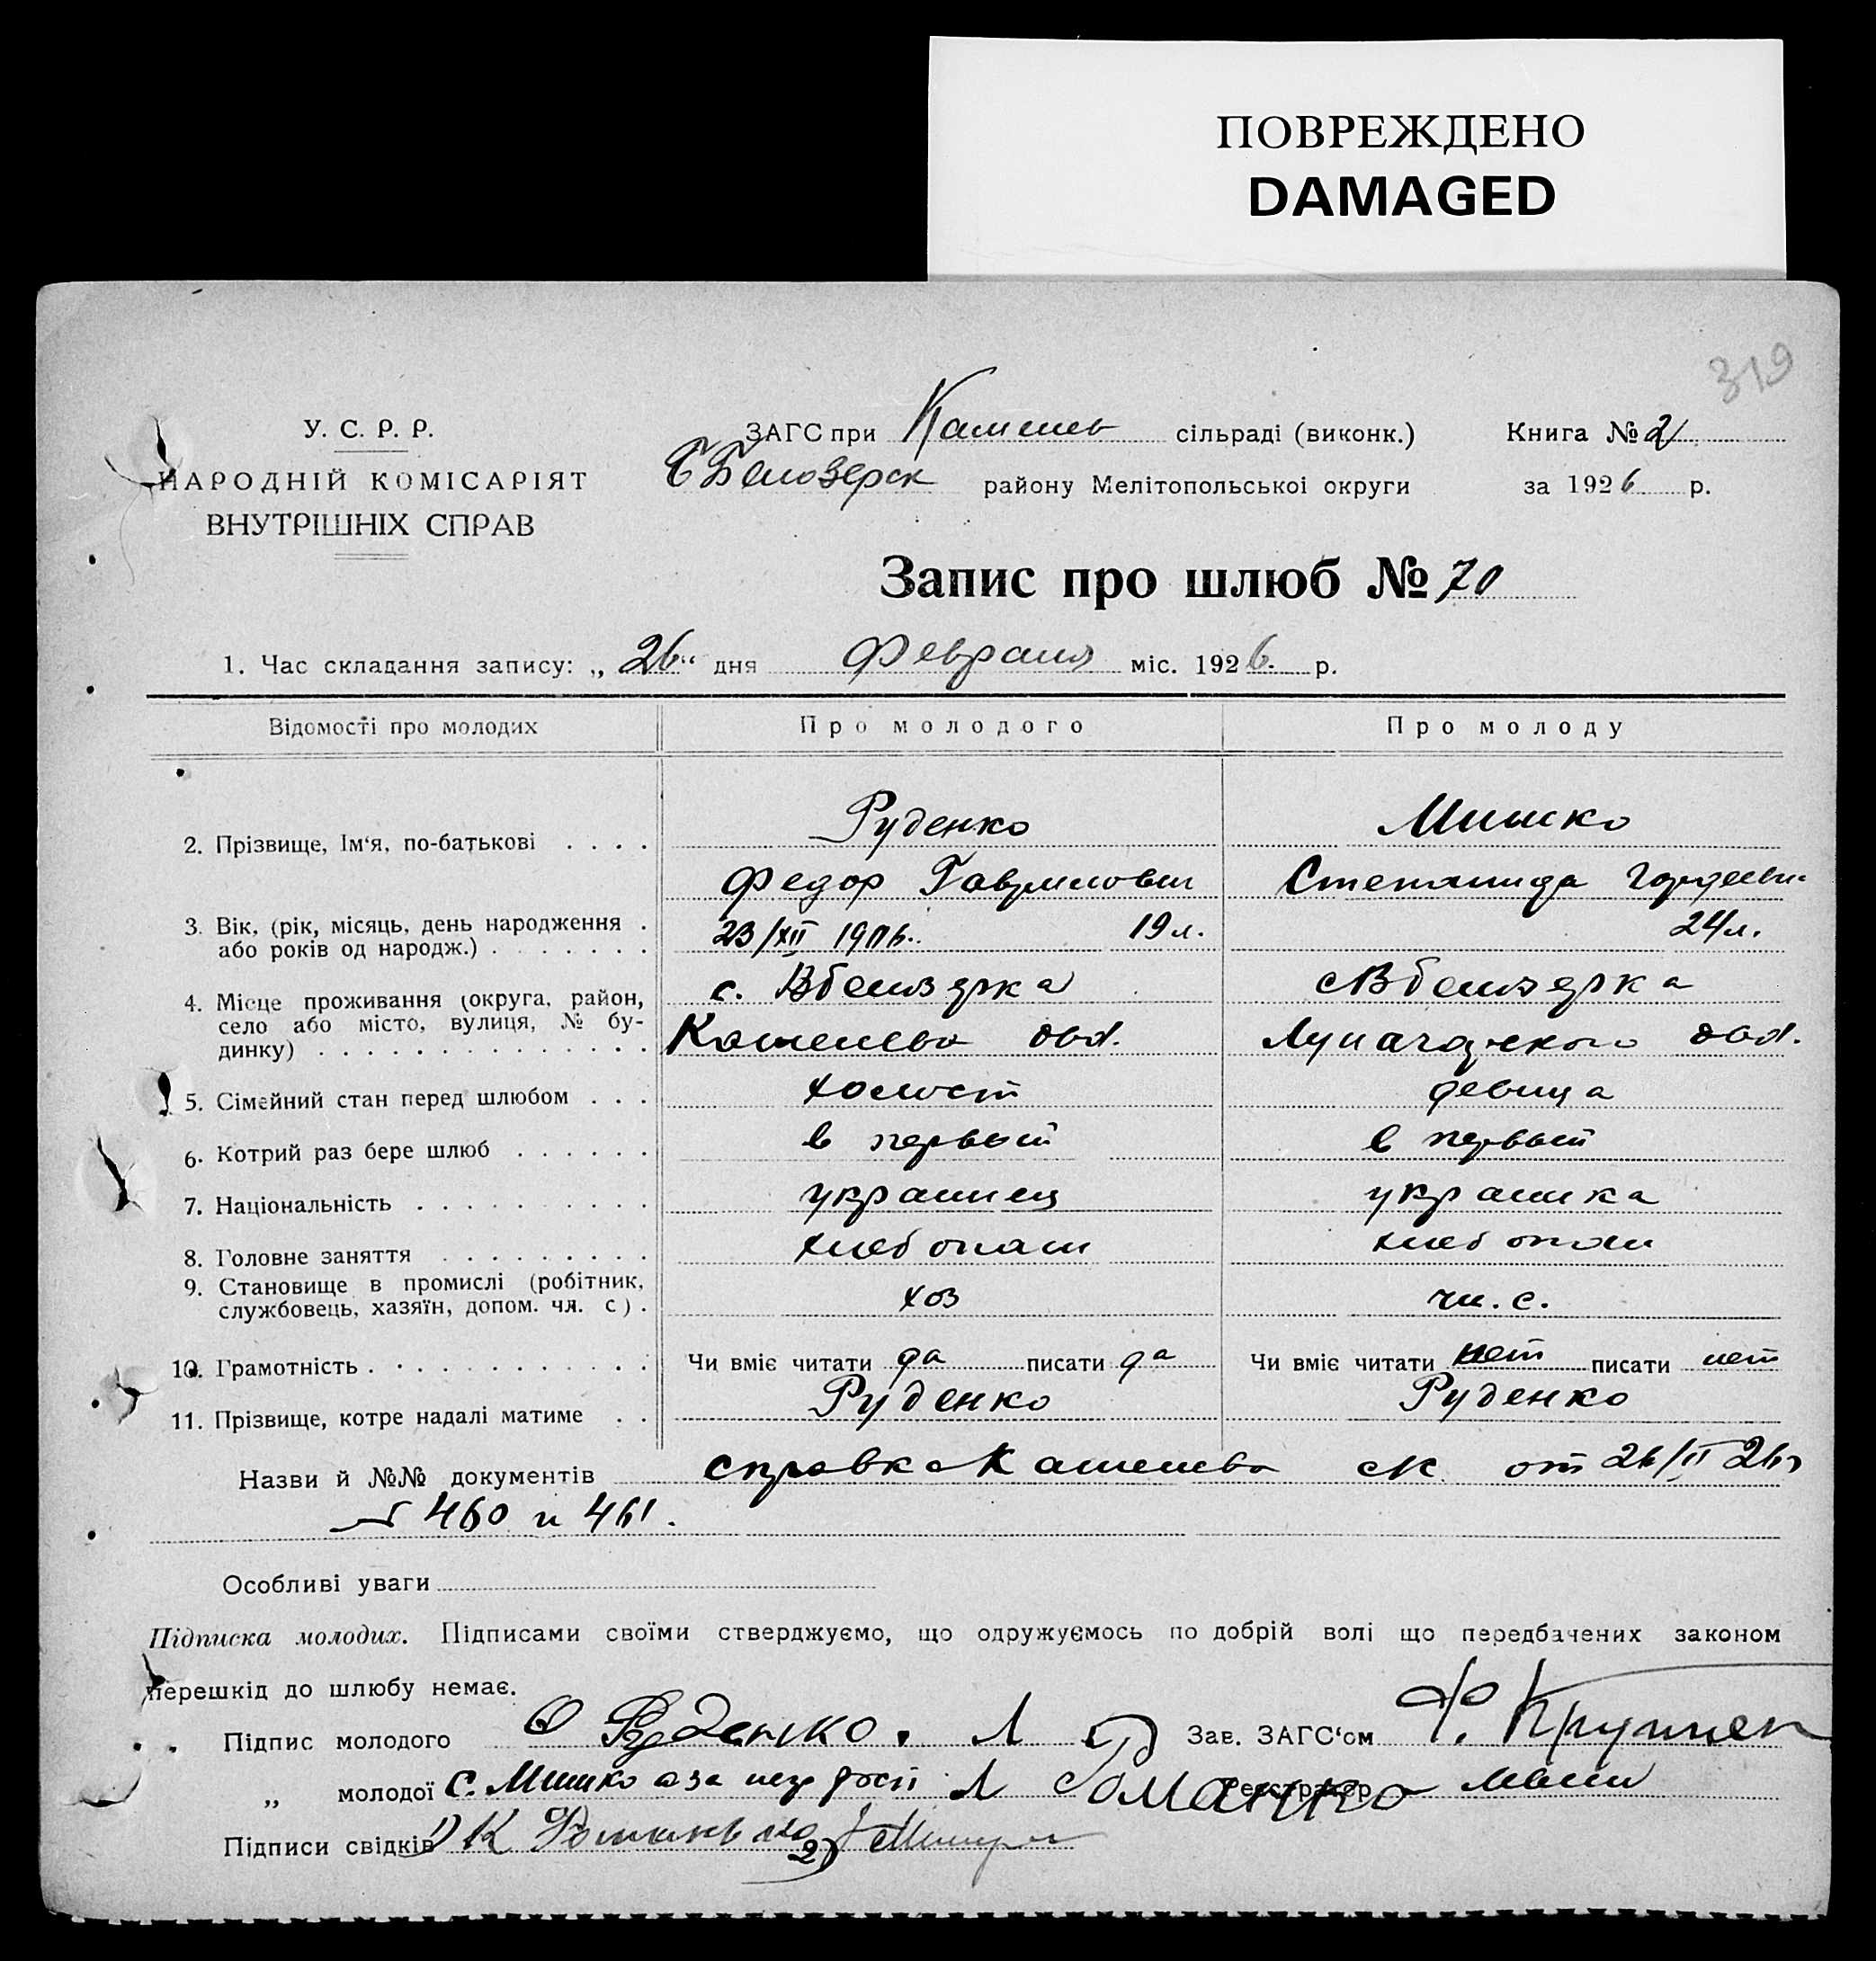 ПОВРЕЖДЕНО
DAMAGED
319
У. С. Р. Р.
НАРОДНІЙ КОМІСАРІЯТ
ВНУТРІШНІХ СПРАВ
ЗАГС при сільраді (виконк.) Книга № 2
району Мелітопольської округи за 1926 р.
Запис про шлюб № 70
1. Час складання запису: „26“ дня Февраля міс. 1926 р.
Відомості про молодих Про молодого Про молоду
2. Прізвище, Ім‘я, по-батькові . . . . Руденко Мишко
Федор Гаврилович Степанида
3. Вік, (рік, місяць, день народження . 23/XII 1906. 19 л. 24 л.
або років од народж.) . . . . . . .
4. Місце проживання (округа, район, с. Вбелозерка с Вбелозерка
село або місто, вулиця, № бу-
динку) . . . . . . . . . . . . . .
5. Сімейний стан перед шлюбом . . . холост девица
6. Котрий раз бере шлюб . . . . . . в первый в первый
7. Національність . . . . . . . . . . украинец украинка
8. Головне заняття . . . . . . . . . хлебопаш хлебопаш
9. Становище в промислі (робітник, хоз чл. с.
службовець, хазяїн, допом. чл. с) .
10. Грамотність . . . . . . . . . . . . Чи вміє читати да писати да Чи вміє читати нет писати нет
11. Прізвище, котре надалі матиме . . Руденко Руденко
Назви й №№ документів справка от 26/II 26
460 и 461.
Особливі уваги
Підписка молодих. Підписами своїми стверджуємо, що одружуємось по добрій волі що передбачених законом
перешкід до шлюбу немає.
Підпис молодого Руденко. Зав. ЗАГС‘ом
„ молодої С. Мишко а за Романко Реєстратор
Підписи свідків 1) К 2)